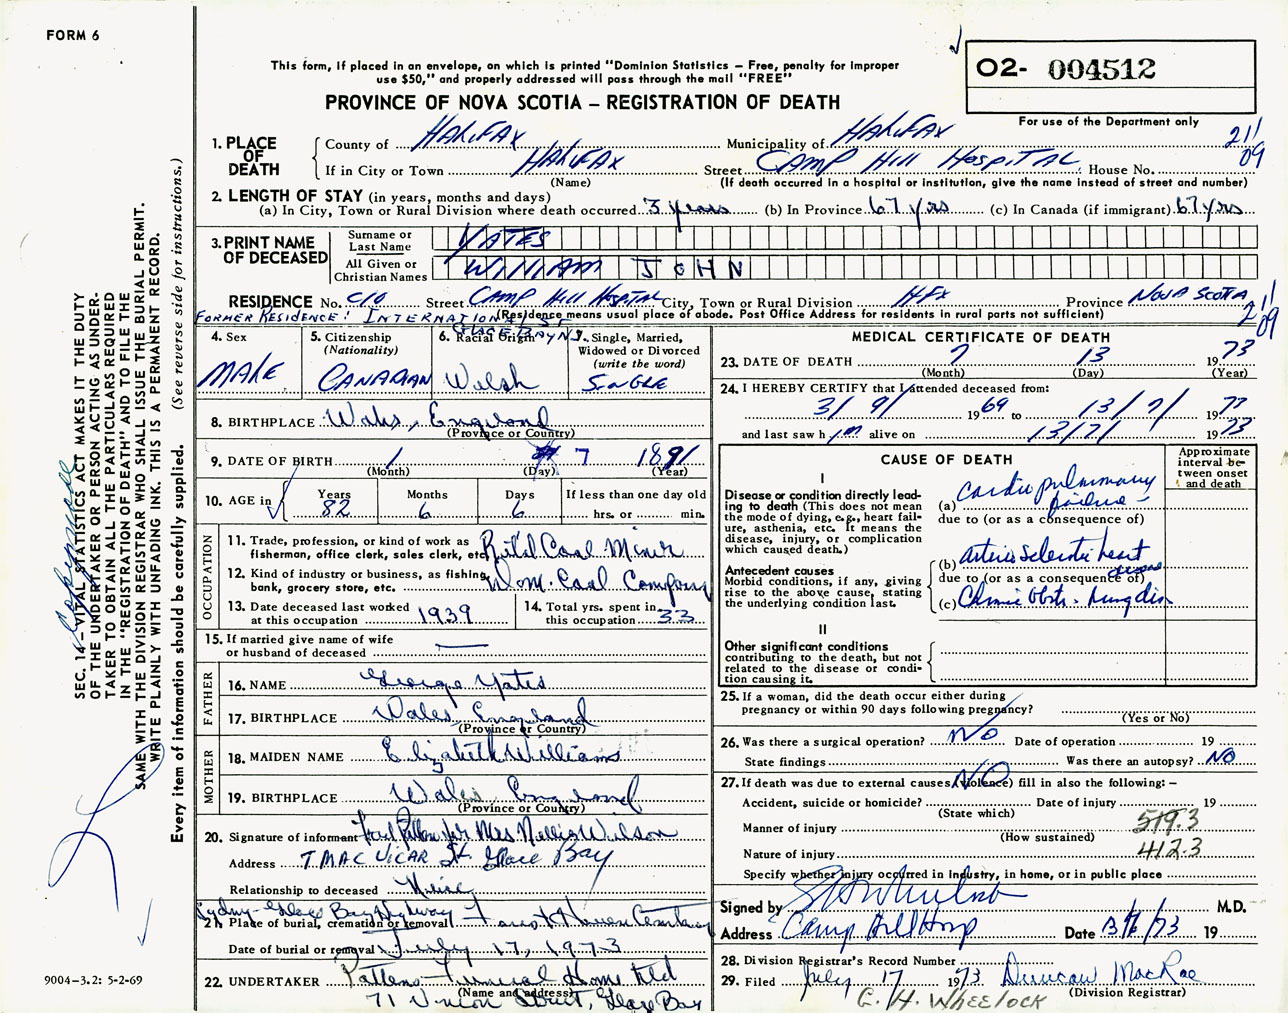 FORM 6
This form, if placed in an envelope, on which is printed "Dominion Statistics – Free, penalty for improper
use $50," and properly addressed will pass through the mail "FREE"
PROVINCE OF NOVA SCOTIA – REGISTRATION OF DEATH
02- 004512
For use of the Department only
211
09
1. PLACE OF DEATH
County of HALIFAX Municipality of HALIFAX
If in City or Town HALIFAX Street CAMP HILL HOSPITAL House No.
(Name) (If death occurred in a hospital or institution, give the name instead of street and number)
2. LENGTH OF STAY (in years, months and days)
(a) In City, Town or Rural Division where death occurred 3 years (b) In Province 67 yrs (c) In Canada (if immigrant) 67 yrs
3. PRINT NAME OF DECEASED
Surname or Last Name YATES
All Given or Christian Names WILLIAM JOHN
RESIDENCE No. C/O Street CAMP HILL HOSPITAL City, Town or Rural Division HFX Province NOVA SCOTIA
FORMER RESIDENCE: INTERNATIONAL ST
GLACE BAY N.S.
(Residence means usual place of abode. Post Office Address for residents in rural parts not sufficient)
211
09
4. Sex MALE
5. Citizenship (Nationality) CANADIAN
6. Racial Origin Welsh
7. Single, Married, Widowed or Divorced (write the word) SINGLE
8. BIRTHPLACE Wales, England
(Province or Country)
9. DATE OF BIRTH 1 7 1891
(Month) (Day) (Year)
10. AGE in Years 82 Months 6 Days 6 If less than one day old hrs. or min.
OCCUPATION
11. Trade, profession, or kind of work as fisherman, office clerk, sales clerk, etc. Ret'd Coal Miner
12. Kind of industry or business, as fishing, bank, grocery store, etc. Dom. Coal Company
13. Date deceased last worked at this occupation 1939
14. Total yrs. spent in this occupation 33
15. If married give name of wife or husband of deceased —
FATHER
16. NAME George Yates
17. BIRTHPLACE Wales, England
(Province or Country)
MOTHER
18. MAIDEN NAME Elizabeth Williams
19. BIRTHPLACE Wales, England
(Province or Country)
20. Signature of informant for Mrs Nellie Wilson
Address 7 MAC VICAR St. Glace Bay
Relationship to deceased Niece
Sydney-Glace Bay Highway
21. Place of burial, cremation or removal Forest Haven Cemetery
Date of burial or removal July 17, 1973
22. UNDERTAKER Pattens Funeral Home Ltd
(Name and address)
71 Union Street, Glace Bay
MEDICAL CERTIFICATE OF DEATH
23. DATE OF DEATH 7 13 1973
(Month) (Day) (Year)
24. I HEREBY CERTIFY that I attended deceased from:
3/9/ 1969 to 13/7/ 1977
and last saw him alive on 13/7/ 1973
CAUSE OF DEATH
Approximate interval between onset and death
I
Disease or condition directly leading to death (This does not mean the mode of dying, e.g., heart failure, asthenia, etc. It means the disease, injury, or complication which caused death.)
(a) Cardio pulmonary failure
due to (or as a consequence of)
Antecedent causes
Morbid conditions, if any, giving rise to the above cause, stating the underlying condition last.
(b) arterio sclerotic heart disease
due to (or as a consequence of)
(c) Chronic Obstr. lung dis
II
Other significant conditions
contributing to the death, but not related to the disease or condition causing it.
25. If a woman, did the death occur either during pregnancy or within 90 days following pregnancy?
(Yes or No)
26. Was there a surgical operation? NO Date of operation 19
State findings Was there an autopsy? NO
27. If death was due to external causes (violence) fill in also the following:– NO
Accident, suicide or homicide? Date of injury 19
(State which)
Manner of injury 519.3
(How sustained)
Nature of injury 412.3
Specify whether injury occurred in industry, in home, or in public place
Signed by M.D.
Address Camp Hill Hosp Date 13/7/73 19
28. Division Registrar's Record Number
29. Filed July 17 1973 Duncan MacRae
(Division Registrar)
G. H. WHEELOCK
SEC. 14 – VITAL STATISTICS ACT MAKES IT THE DUTY
OF THE UNDERTAKER OR PERSON ACTING AS UNDER-
TAKER TO OBTAIN ALL THE PARTICULARS REQUIRED
IN THE "REGISTRATION OF DEATH" AND TO FILE THE
SAME WITH THE DIVISION REGISTRAR WHO SHALL ISSUE THE BURIAL PERMIT.
WRITE PLAINLY WITH UNFADING INK. THIS IS A PERMANENT RECORD.
Every item of information should be carefully supplied. (See reverse side for instructions.)
9004–3.2: 5-2-69